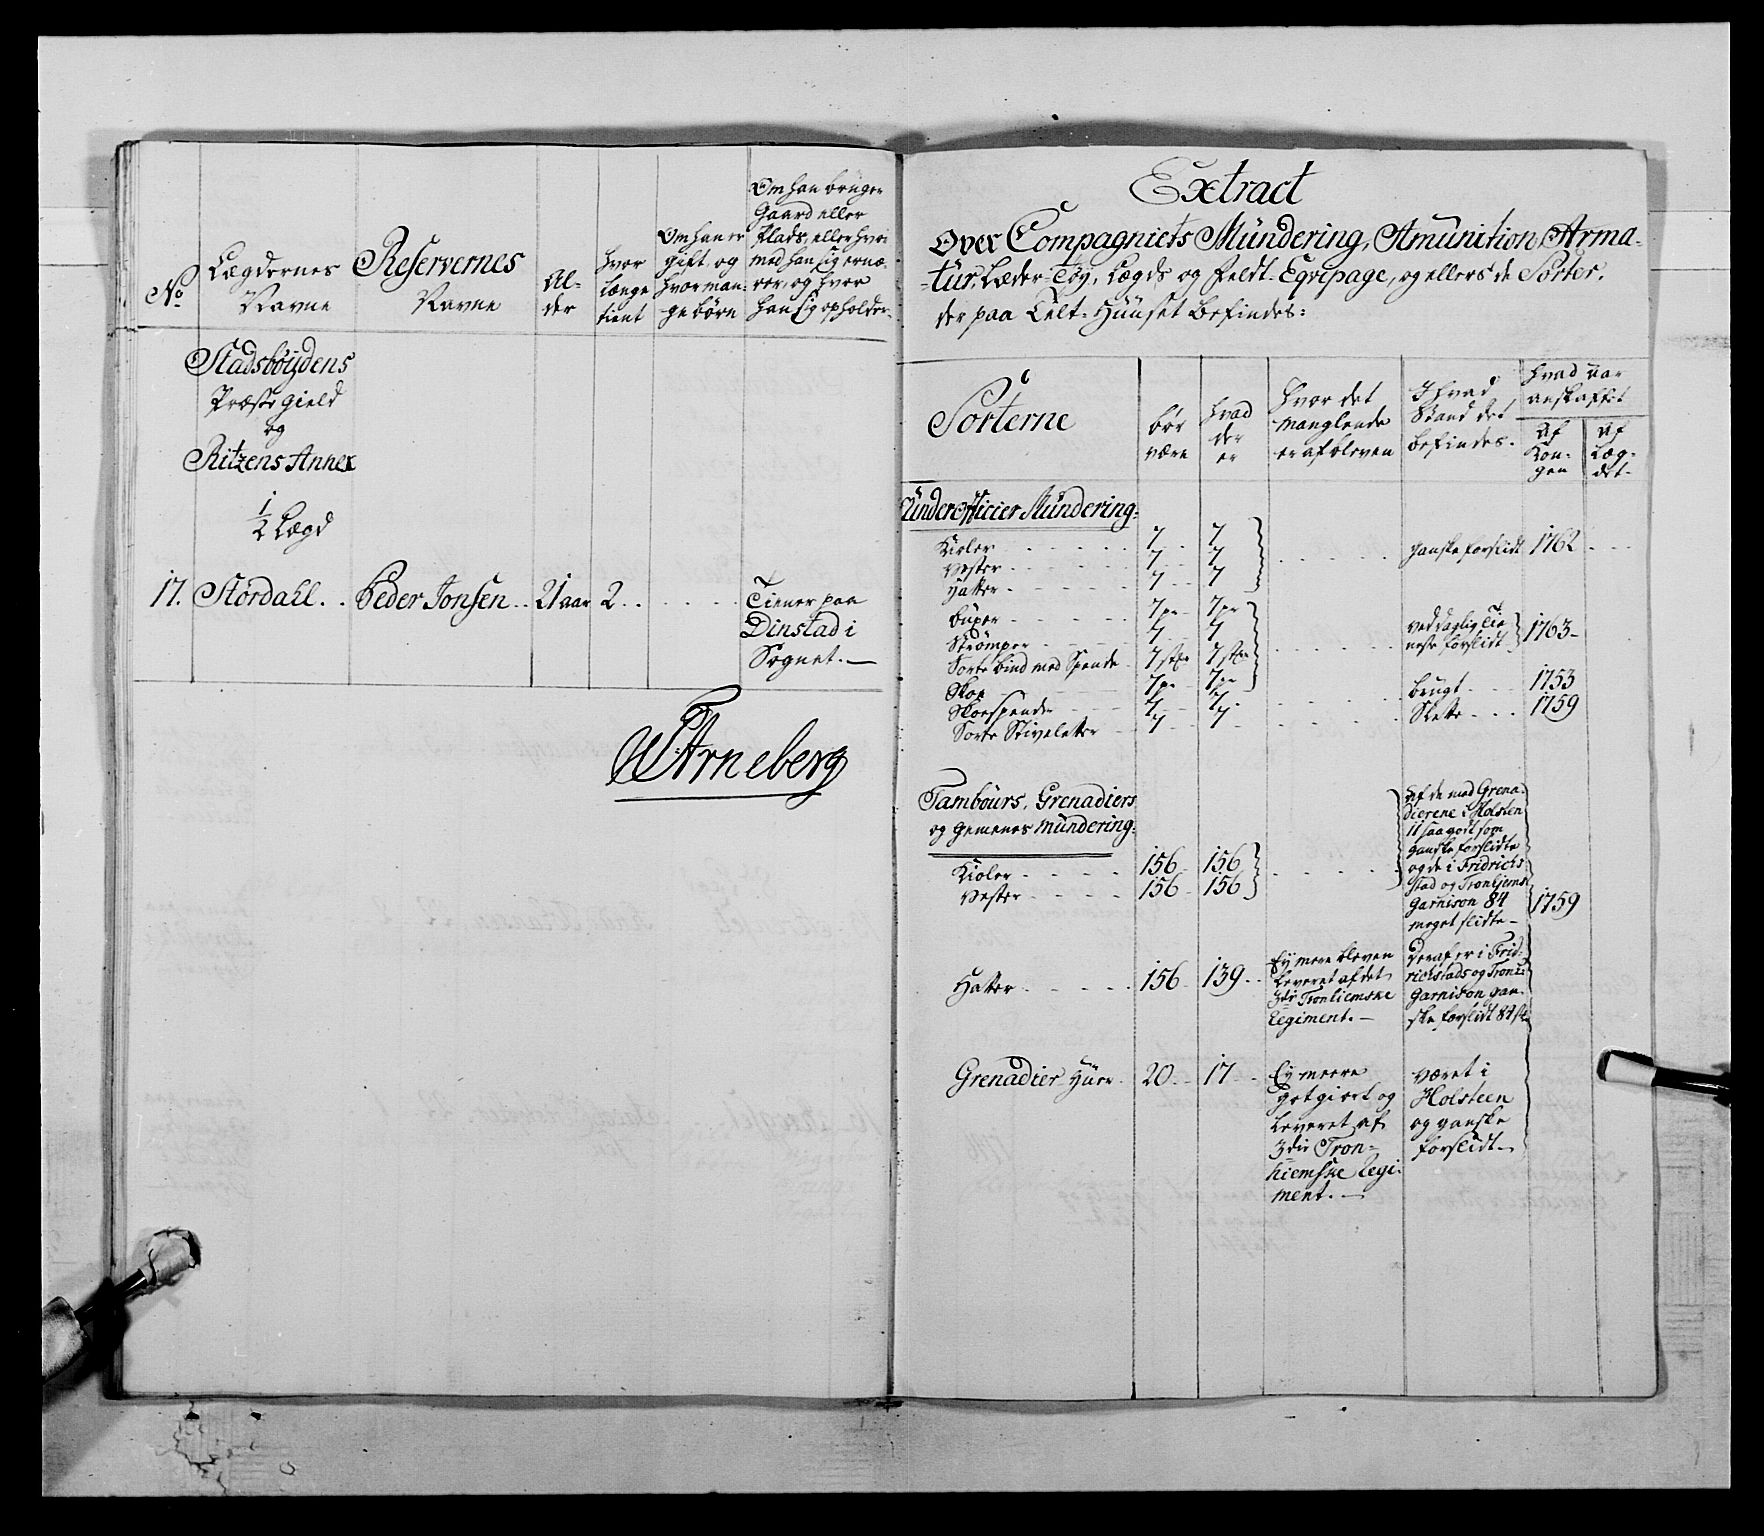 No
Lægdernes
Navne
Reservernes
Navne
Al-
der
hvor
længe
tient
Om han er
gift, og
hvor man-
ge børn
Om han bruger
Gaard eller
Plads, eller hvor
med han sig ernæ-
rer, og hvor
han sig opholder.
Stadsbøydens
Præste Gield
og
Ritzens Annex
1/2 Lægd
17. Størdahl . . Peder Jonsen . . 21 aar 2 . . . . . . Tiener paa
Dinstad i
Sognet. —
Arneberg
Extract
Over Compagniets Mündering, Amünition, Arma-
tür, Læder-Tøy, Lægds og Feldt-Eqvipage, og ellers de Sorter,
der paa Telt-Hüüset befindes:
Sorterne
bør
være
hvad
der
er
Hvor det
manglende
er afbleven
I hvad
Stand det
befindes.
hvad aar
anskaffet
Af
Kon-
gen
Af
Læg-
det.
Under Officier Mündering:
Kioler . . . . . . 7 . . 7
Vester . . . . . . 7 . . 7 . . . . . ganske forslidt 1762 . . .
Hatter . . . . . . 7 . . 7
Buxer . . . . . . 7 pr 7 pr
Strømper . . . . 7 . . 7 ved daglig Tie-
neste forslidt 1763 –
Sorte bind med Spende . 7 stkr 7 stkr
Skoe . . . . . . 7 pr 7 pr brugt . . . 1753
Skoespender . . . . 7 . . 7 . . . . . Slette . . . 1759
Sorte Stiveletter . . 7 . . 7
Tambours, Grenadiers
og Gemenes Mündering:
Kioler . . . . . 156 . . 156
Vester . . . . . 156 . . 156
Af de med Grena-
dierene i Holsten
11 saa godt som
ganske forslidte
og de i Fridrichs-
stad og Tronhjems
Garnison 84
meget slidte —
1759
Hatter . . . . . 156 . . 139 . .
Ey mere bleven
leveret af det
3die Tronhiemske
Regiment. —
Deraf er i Frid-
richstads og Tronh:
Garnison gan-
ske forslidt 84 st
Grenadier Hüer . 20 . . 17 . .
Ey meere
gotgiort og
leveret af
3die Tron-
hiemske Regi-
ment. —
Været i
Holsteen
og ganske
forslidt. —